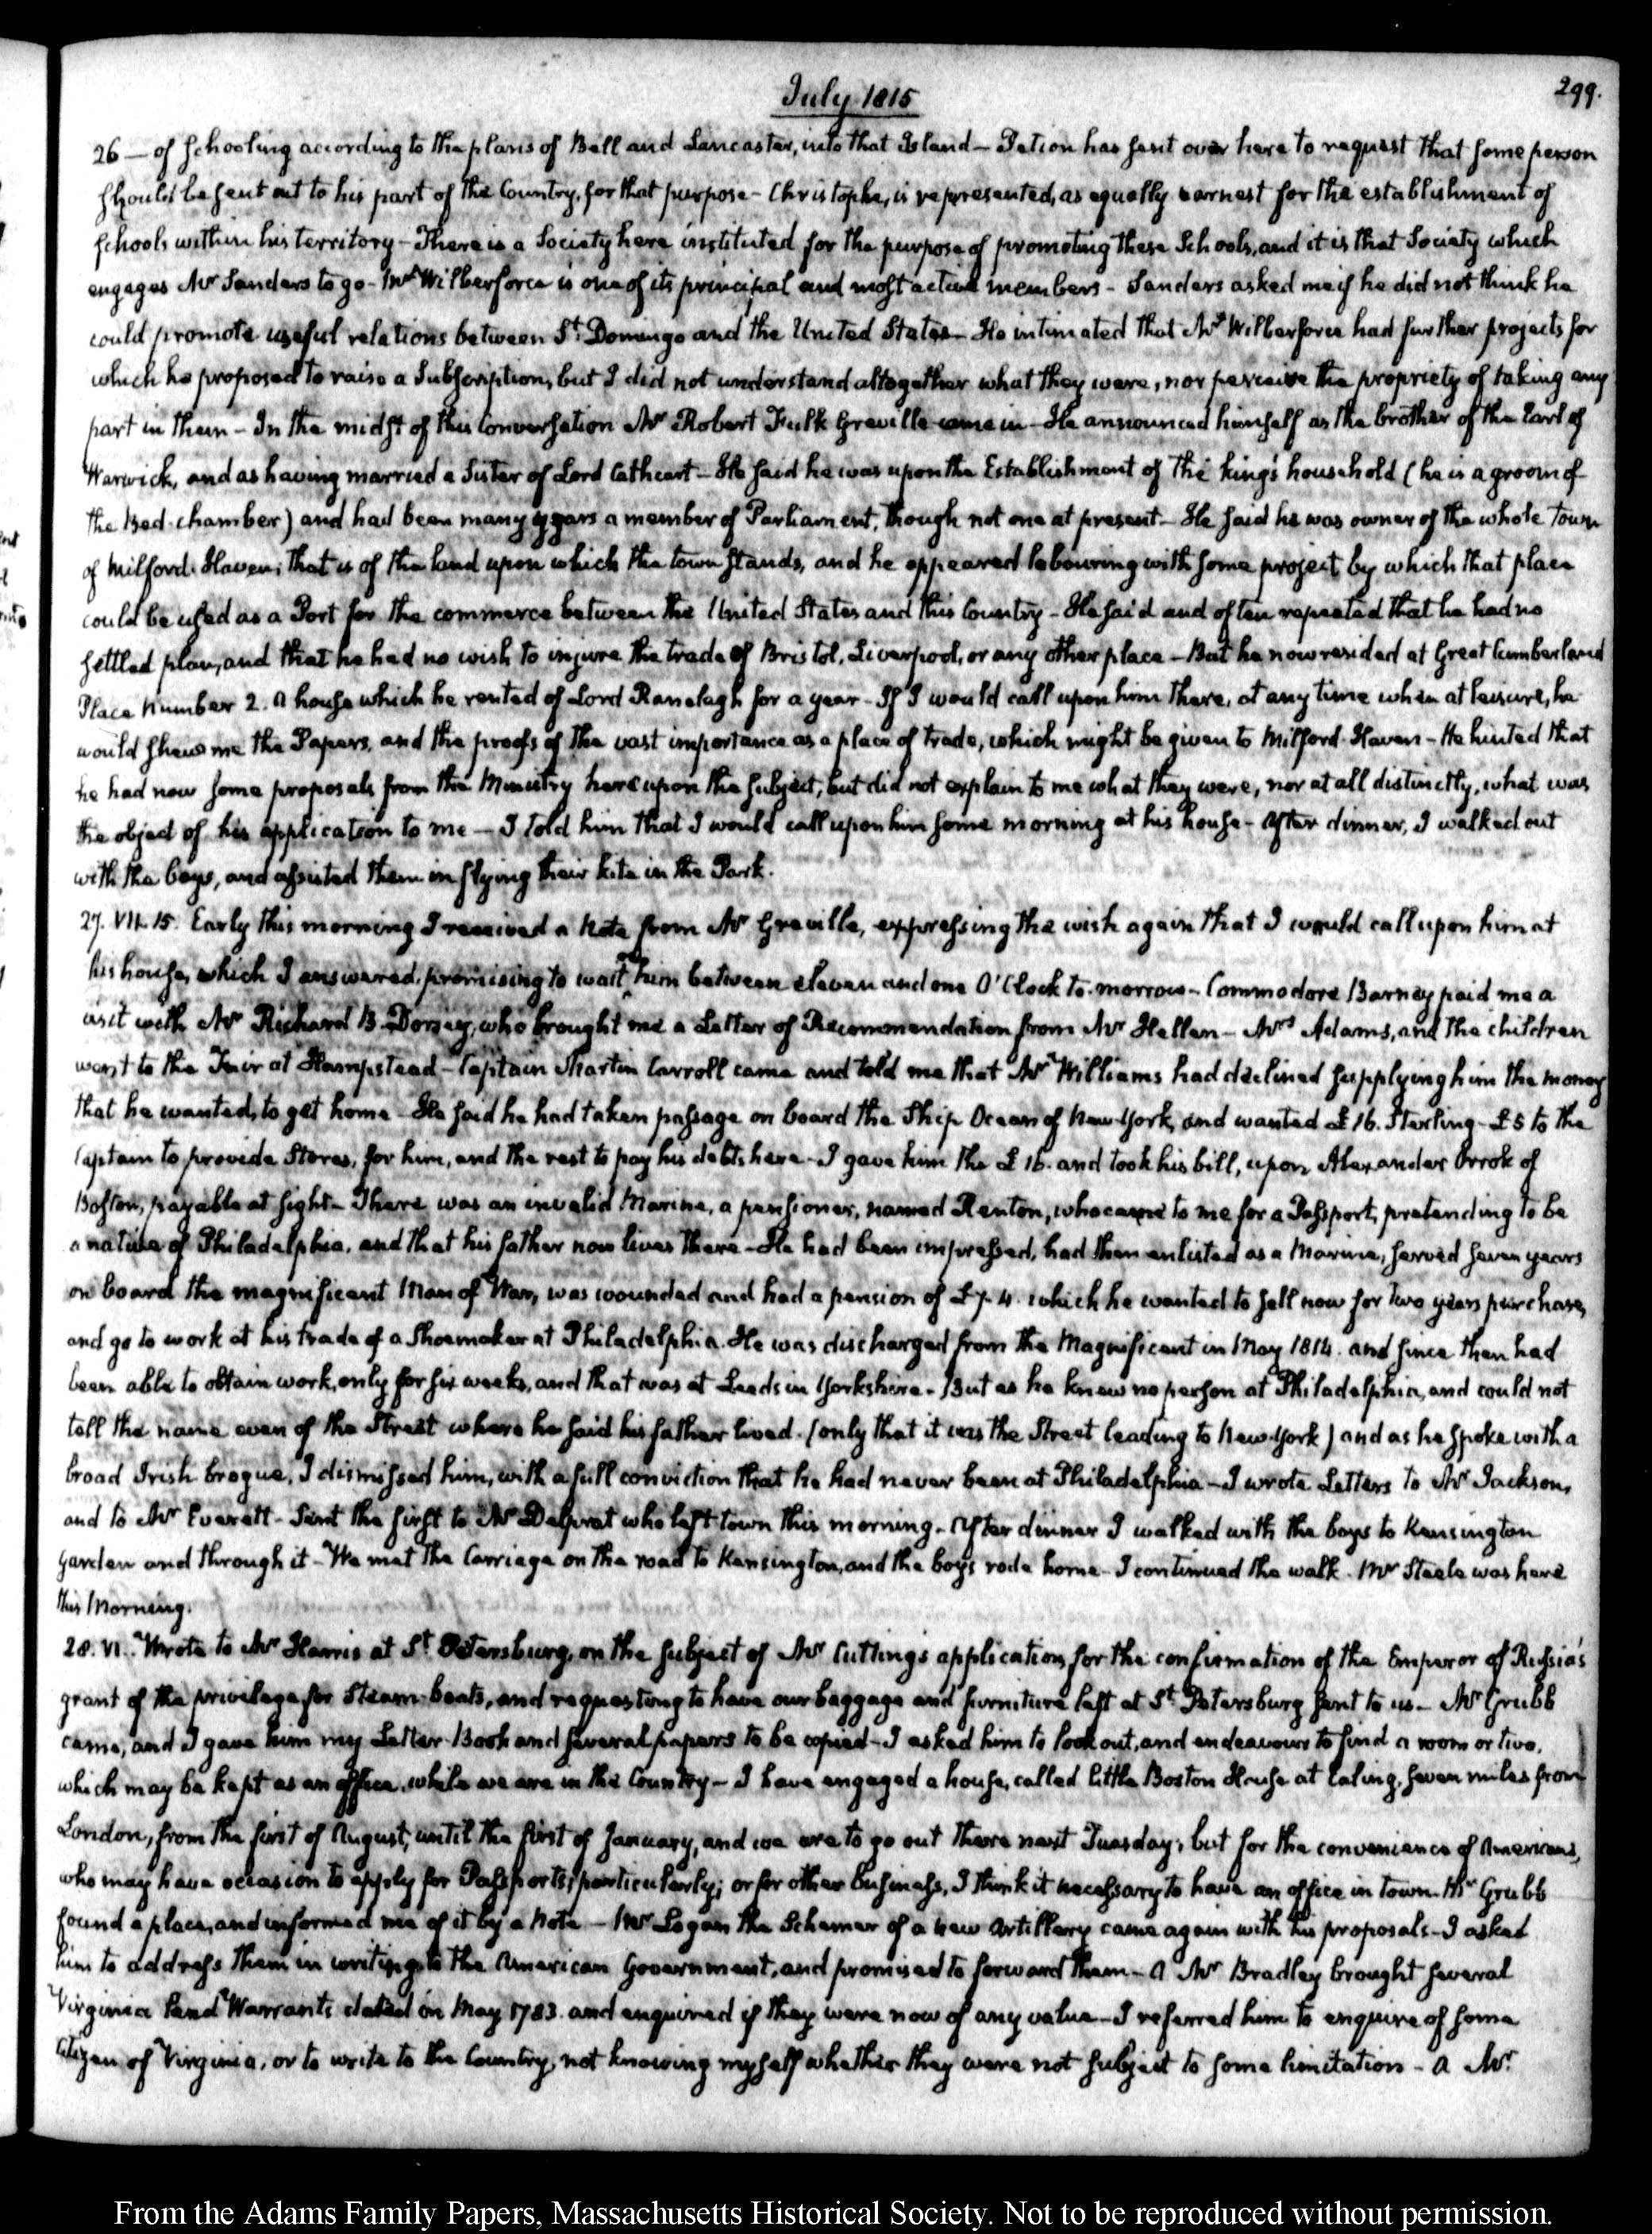 July 1815
299.
26 — of Schooling according to the plans of Bell and Lancaster, into that Island — Petion has sent over here to request that some person
should be sent out to his part of the Country, for that purpose — Christophe, is represented, as equally earnest for the establishment of
schools within his territory — There is a Society here instituted for the purpose of promoting these Schools, and it is that Society which
engages Mr Sanders to go — Mr Wilberforce is one of its principal and most active members — Sanders asked me if he did not think he
could promote useful relations between St. Domingo and the United States — He intimated that Mr Wilberforce had further projects for
which he proposed to raise a Subscription, but I did not understand altogether what they were, nor perceive the propriety of taking any
part in them — In the midst of this Conversation Mr Robert Fulk Greville came in — He announced himself as the brother of the Earl of
Warwick, and as having married a Sister of Lord Cathcart — He said he was upon the Establishment of the king's household (he is a groom of
the Bed-chamber) and had been many years a member of Parliament, though not one at present — He said he was owner of the whole town
of Milford-Haven; that is of the land upon which the town stands, and he appeared labouring with some project by which that place
could be used as a Port for the commerce between the United States and this Country — He said and often repeated that he had no
settled plan, and that he had no wish to injure the trade of Bristol, Liverpool, or any other place — But he now resided at Great Cumberland
Place Number 2. a house which he rented of Lord Ranelagh for a year — If I would call upon him there, at any time when at leisure, he
would shew me the Papers, and the proofs of the vast importance as a place of trade, which might be given to Milford-Haven — He hinted that
he had now some proposals from the Ministry here upon the subject, but did not explain to me what they were, nor at all distinctly, what was
the object of his application to me — I told him that I would call upon him some morning at his house — After dinner, I walked out
with the boys, and assisted them in flying their kite in the Park.
27. VII. 15. Early this morning I received a Note from Mr Greville, expressing the wish again that I would call upon him at
his house, which I answered, promising to wait on him between eleven and one O'Clock to-morrow — Commodore Barney paid me a
visit with Mr Richard B. Dorsey, who brought me a Letter of Recommendation from Mr Hellen — Mrs Adams, and the children
went to the Fair at Hampstead — Captain Martin Carroll came and told me that Mr Williams had declined supplying him the money
that he wanted, to get home — He said he had taken passage on board the Ship Ocean of New-York, and wanted £16. Sterling — £5 to the
Captain to provide Stores, for him, and the rest to pay his debts here — I gave him the £16. and took his bill, upon Alexander Orrok of
Boston, payable at sight — There was an invalid Marine, a pensioner, named Renton, who came to me for a Passport, pretending to be
a native of Philadelphia, and that his father now lives there — He had been impressed, had then enlisted as a Marine, served seven years
on board the magnificent Man of War, was wounded and had a pension of £7. 4. which he wanted to sell now for two years purchase,
and go to work at his trade of a Shoemaker at Philadelphia. He was discharged from the Magnificent in May 1814. and since then had
been able to obtain work, only for six weeks, and that was at Leeds in Yorkshire — But as he knew no person at Philadelphia, and could not
tell the name even of the Street where he said his father lived. (only that it was the Street leading to New-York) and as he spoke with a
broad Irish brogue, I dismissed him, with a full conviction that he had never been at Philadelphia — I wrote Letters to Mr Jackson,
and to Mr Everett — Sent the first to Mr Delprat who left town this morning. After dinner I walked with the boys to Kensington
Garden and through it — We met the Carriage on the road to Kensington, and the boys rode home — I continued the walk. Mr Steele was here
this Morning.
28. VI. Wrote to Mr Harris at St. Petersburg, on the subject of Mr Cutting's application, for the confirmation of the Emperor of Russia's
grant of the privilege for Steam-boats, and requesting to have our baggage and furniture left at St. Petersburg sent to us — Mr Grubb
came, and I gave him my Letter-Book and several papers to be copied — I asked him to look out, and endeavour to find a room or two,
which may be kept as an office, while we are in the Country — I have engaged a house, called little Boston House at Ealing, seven miles from
London, from the first of August, until the first of January, and we are to go out there next Tuesday; but for the convenience of Americans,
who may have occasion to apply for Passports, particularly; or for other business, I think it necessary to have an office in town. Mr Grubb
found a place, and informed me of it by a Note — Mr Logan the Schemer of a new Artillery came again with his proposals — I asked
him to address them in writing to the American Government, and promised to forward them — A Mr Bradley brought several
Virginia Land Warrants dated in May 1783. and enquired if they were now of any value — I referred him to enquire of some
Citizen of Virginia, or to write to the Country, not knowing myself whether they were not subject to some limitation — A Mr.
From the Adams Family Papers, Massachusetts Historical Society. Not to be reproduced without permission.